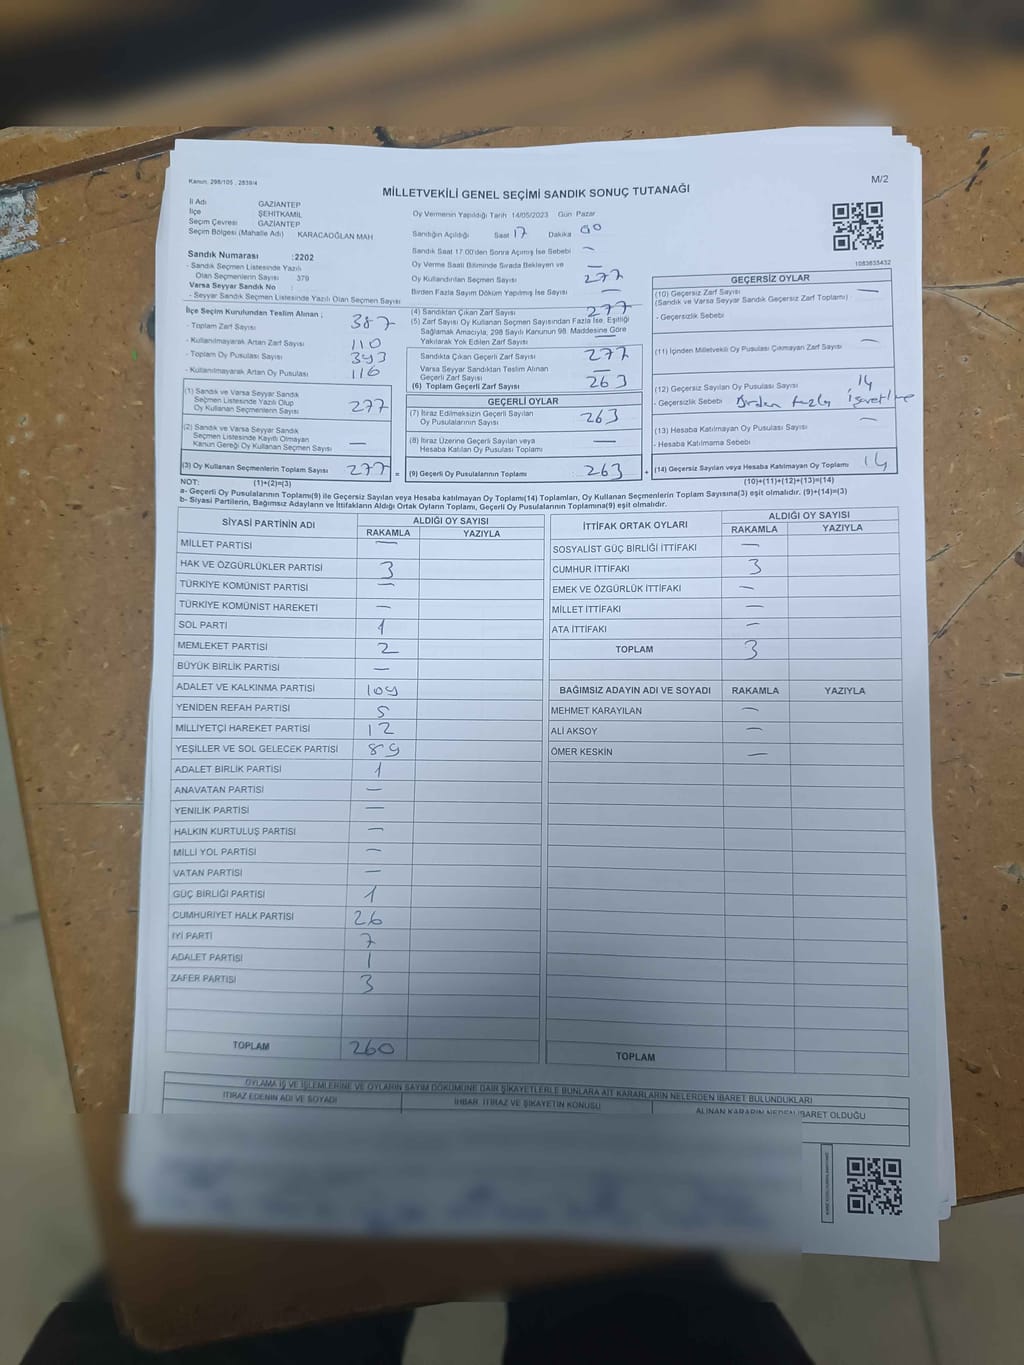 Kanun, 298/105 , 2839/4
M/2
MİLLETVEKİLİ GENEL SEÇİMİ SANDIK SONUÇ TUTANAĞI
İl Adı GAZİANTEP
İlçe ŞEHİTKAMİL
Seçim Çevresi GAZİANTEP
Seçim Bölgesi (Mahalle Adı) KARACAOĞLAN MAH
Oy Vermenin Yapıldığı Tarih 14/05/2023 Gün Pazar
Sandığın Açıldığı Saat 17 Dakika 00
Sandık Saat 17.00'den Sonra Açımış İse Sebebi —
Oy Verme Saati Bitiminde Sırada Bekleyen ve
Oy Kullandırılan Seçmen Sayısı 277
Birden Fazla Sayım Döküm Yapılmış İse Sayısı —
1083635432
Sandık Numarası :2202
- Sandık Seçmen Listesinde Yazılı
Olan Seçmenlerin Sayısı 379
Varsa Seyyar Sandık No :
- Seyyar Sandık Seçmen Listesinde Yazılı Olan Seçmen Sayısı
İlçe Seçim Kurulundan Teslim Alınan ;
- Toplam Zarf Sayısı 387
- Kullanılmayarak Artan Zarf Sayısı 110
- Toplam Oy Pusulası Sayısı 393
- Kullanılmayarak Artan Oy Pusulası 116
(1) Sandık ve Varsa Seyyar Sandık
Seçmen Listesinde Yazılı Olup
Oy Kullanan Seçmenlerin Sayısı 277
(2) Sandık ve Varsa Seyyar Sandık
Seçmen Listesinde Kayıtlı Olmayan
Kanun Gereği Oy Kullanan Seçmen Sayısı —
(3) Oy Kullanan Seçmenlerin Toplam Sayısı 277 =
(4) Sandıktan Çıkan Zarf Sayısı 277
(5) Zarf Sayısı Oy Kullanan Seçmen Sayısından Fazla İse, Eşitliği
Sağlamak Amacıyla, 298 Sayılı Kanunun 98. Maddesine Göre
Yakılarak Yok Edilen Zarf Sayısı —
Sandıkta Çıkan Geçerli Zarf Sayısı 277
Varsa Seyyar Sandıktan Teslim Alınan
Geçerli Zarf Sayısı —
(6) Toplam Geçerli Zarf Sayısı 263
GEÇERLİ OYLAR
(7) İtiraz Edilmeksizin Geçerli Sayılan
Oy Pusulalarının Sayısı 263
(8) İtiraz Üzerine Geçerli Sayılan veya
Hesaba Katılan Oy Pusulası Toplamı —
(9) Geçerli Oy Pusulalarının Toplamı : 263 +
GEÇERSİZ OYLAR
(10) Geçersiz Zarf Sayısı —
(Sandık ve Varsa Seyyar Sandık Geçersiz Zarf Toplamı)
- Geçersizlik Sebebi
(11) İçinden Milletvekili Oy Pusulası Çıkmayan Zarf Sayısı —
(12) Geçersiz Sayılan Oy Pusulası Sayısı 14
- Geçersizlik Sebebi Birden fazla işaretleme
(13) Hesaba Katılmayan Oy Pusulası Sayısı —
- Hesaba Katılmama Sebebi
(14) Geçersiz Sayılan veya Hesaba Katılmayan Oy Toplamı 14
NOT: (1)+(2)=(3) (10)+(11)+(12)+(13)=(14)
a- Geçerli Oy Pusulalarının Toplamı(9) ile Geçersiz Sayılan veya Hesaba katılmayan Oy Toplamı(14) Toplamları, Oy Kullanan Seçmenlerin Toplam Sayısına(3) eşit olmalıdır. (9)+(14)=(3)
b- Siyasi Partilerin, Bağımsız Adayların ve İttifakların Aldığı Ortak Oyların Toplamı, Geçerli Oy Pusulalarının Toplamına(9) eşit olmalıdır.
SİYASİ PARTİNİN ADI ALDIĞI OY SAYISI
RAKAMLA YAZIYLA
MİLLET PARTİSİ —
HAK VE ÖZGÜRLÜKLER PARTİSİ 3
TÜRKİYE KOMÜNİST PARTİSİ —
TÜRKİYE KOMÜNİST HAREKETİ —
SOL PARTİ 1
MEMLEKET PARTİSİ 2
BÜYÜK BİRLİK PARTİSİ —
ADALET VE KALKINMA PARTİSİ 109
YENİDEN REFAH PARTİSİ 5
MİLLİYETÇİ HAREKET PARTİSİ 12
YEŞİLLER VE SOL GELECEK PARTİSİ 89
ADALET BİRLİK PARTİSİ 1
ANAVATAN PARTİSİ —
YENİLİK PARTİSİ —
HALKIN KURTULUŞ PARTİSİ —
MİLLİ YOL PARTİSİ —
VATAN PARTİSİ —
GÜÇ BİRLİĞİ PARTİSİ 1
CUMHURİYET HALK PARTİSİ 26
İYİ PARTİ 7
ADALET PARTİSİ 1
ZAFER PARTİSİ 3
TOPLAM 260
İTTİFAK ORTAK OYLARI ALDIĞI OY SAYISI
RAKAMLA YAZIYLA
SOSYALİST GÜÇ BİRLİĞİ İTTİFAKI —
CUMHUR İTTİFAKI 3
EMEK VE ÖZGÜRLÜK İTTİFAKI —
MİLLET İTTİFAKI —
ATA İTTİFAKI —
TOPLAM 3
BAĞIMSIZ ADAYIN ADI VE SOYADI RAKAMLA YAZIYLA
MEHMET KARAYILAN —
ALİ AKSOY —
ÖMER KESKİN —
TOPLAM
OYLAMA İŞ VE İŞLEMLERİNE VE OYLARIN SAYIM DÖKÜMÜNE DAİR ŞİKAYETLERLE BUNLARA AİT KARARLARIN NELERDEN İBARET BULUNDUKLARI
İTİRAZ EDENİN ADI VE SOYADI İHBAR, İTİRAZ VE ŞİKAYETİN KONUSU ALINAN KARARIN NEDEN İBARET OLDUĞU